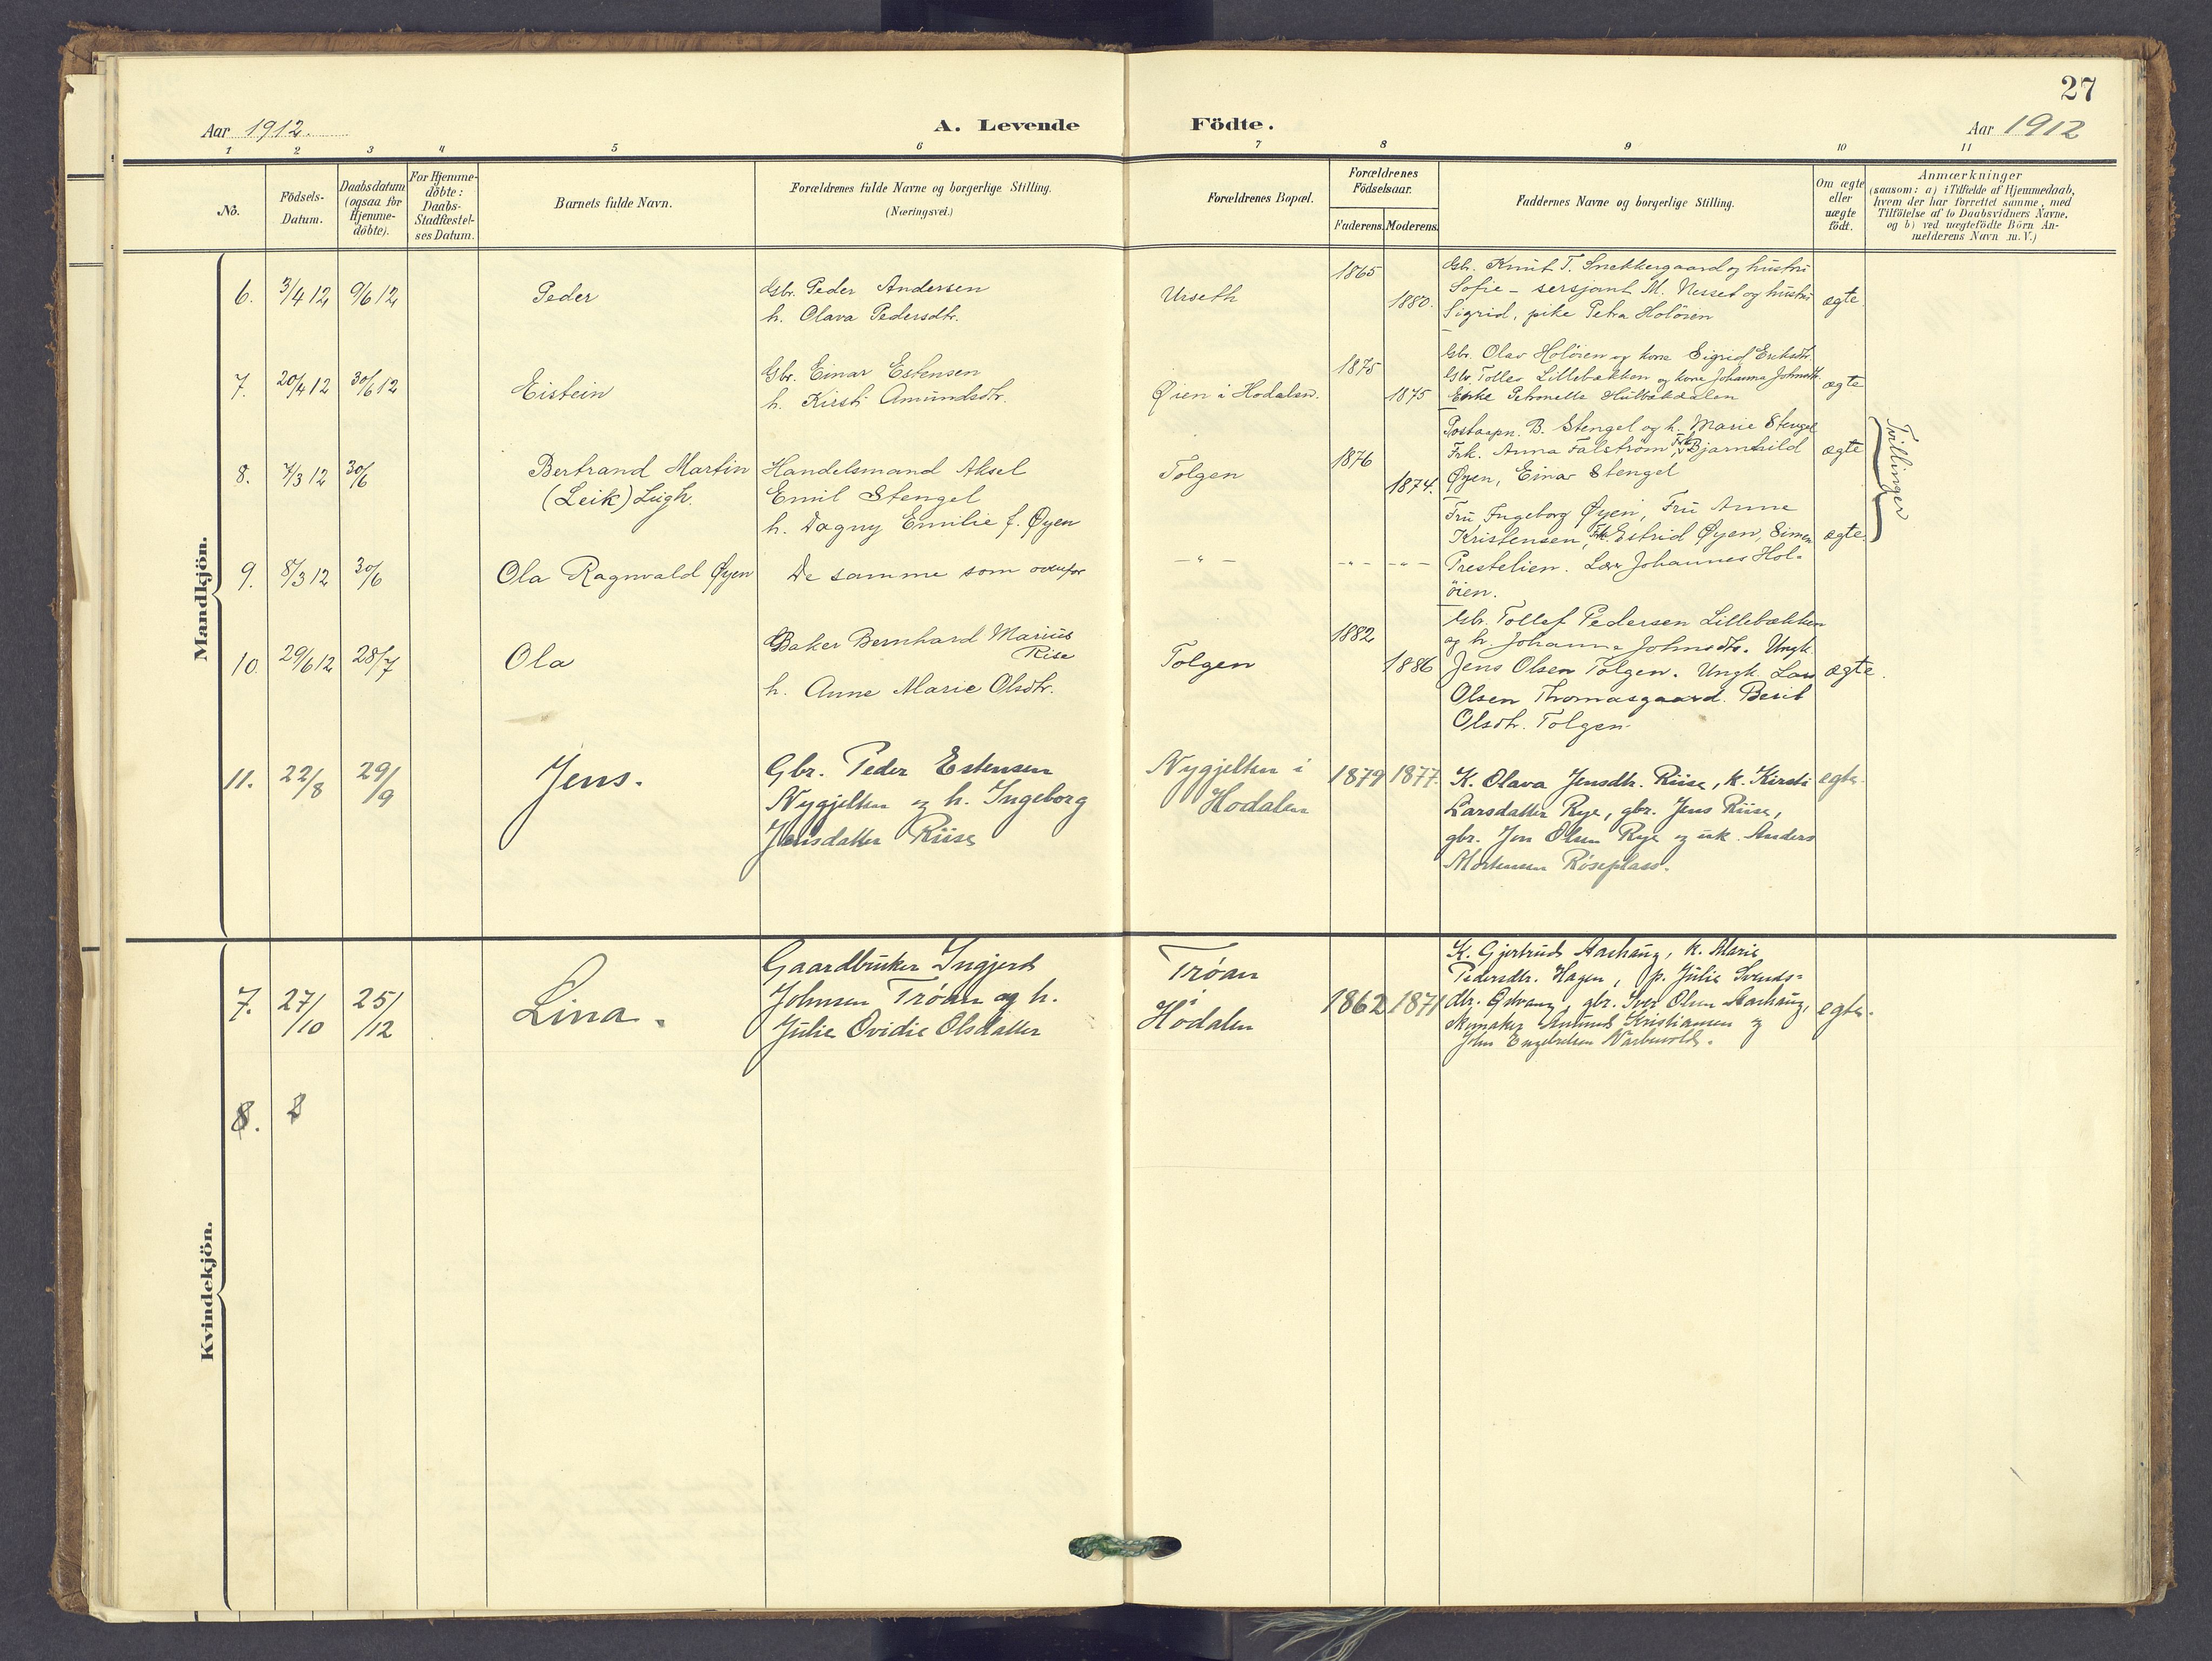 27
Aar 1912.
A. Levende
Födte.
Aar 1912
1 2 3 4 5 6 7 8 9 10 11
No.
Födsels-
Datum.
Daabsdatum
(ogsaa for
Hjemme-
döbte).
For Hjemme-
döbte:
Daabs-
Stadfæstel-
ses Datum.
Barnets fulde Navn.
Forældrenes fulde Navne og borgerlige Stilling.
(Næringsvei.)
Forældrenes Bopæl.
Forældrenes
Födselsaar.
Faderens. Moderens.
Faddernes Navne og borgerlige Stilling.
Om ægte
eller
uægte
födt.
Anmærkninger
(saasom: a) i Tilfælde af Hjemmedaab,
hvem der har forrettet samme, med
Tilföielse af to Daabsvidners Navne,
og b) ved uægtefödte Börn An-
melderens Navn m. V.)
Mandkjön.
6. 3/4 12 9/6 12 Peder
Gbr. Peder Andersen
h. Olava Pedersdtr.
Urseth
1865
1880.
Gbr. Knut T. Snekkergaard og hustru
Sofie - sersjant M. Nesset og hustru
Sigrid, pike Petra Holöien
ægte.
7. 20/4 12 30/6 12 Eistein
Gbr. Einar Estensen
h. Kirsti Amundsdtr.
Øien i Hodalen.
1875
1875
Gbr. Olav Holöien og kone Sigrid Eriksdtr.
Gbr. Tollev Lillebækken og kone Johanna Johnsdtr.
Enke Petronelle
ægte
8. 7/3 12 30/6
Bertrand Martin
(Leik) Leigh.
Handelsmand Aksel
Emil Stengel
h. Dagny Emilie f. Øyen
Tolgen
1876
1874.
Postaapn. B. Stengel og h. Marie Stengel
Frk. Anna Falstrøm, Frk. Bjarnhild
Øyen, Einar Stengel
ægte
Tvillinger
9. 8/3 12 30/6 Ola Ragnvald Øyen
De samme som ovenfor
- " - - " - - " -
Fru Ingeborg Øyen, Fru Anne
Kristensen, Frk. Estrid Øyen, Simen
Prestelien. Lærer Johannes Hol-
öien.
ægte.
10. 29/6 12 28/7 Ola
Baker Bernhard Marius
Rise
h. Anne Marie Olsdtr.
Tolgen
1882
1886
Gbr. Tollef Pedersen Lillebækken
og h. Johanna Johnsdtr. Ungk.
Jens Olsen Tolgen. Ungk. Lars
Olsen Thomasgaard. Berit
Olsdtr. Tolgen.
ægte.
11. 22/8 29/9 Jens.
Gbr. Peder Estensen
Nygjelten og h. Ingeborg
Jensdatter Riise
Nygjelten i
Hodalen
1879 1877.
K. Olava Jensdtr. Riise, k. Kirsti
Larsdatter Rye, gbr. Jens Riise,
gbr. Jon Olsen Rye og uk. Anders
Mortensen Røseplass.
egte.
Kvindekjön.
7. 27/10 25/12 Lina.
Gaardbruker Ingjerd
Johnsen Trøan og h.
Julie Ovidie Olsdatter
Trøan
i
Hodalen
1862 1871
K. Gjertrud Aashaug, k. Marie
Pedersdtr. Hagen, p. Julie Svends-
dtr. gbr. Iver Olsen Aashaug,
skomaker Amund Kristiansen og
John Engebretsen
egte.
8. 2